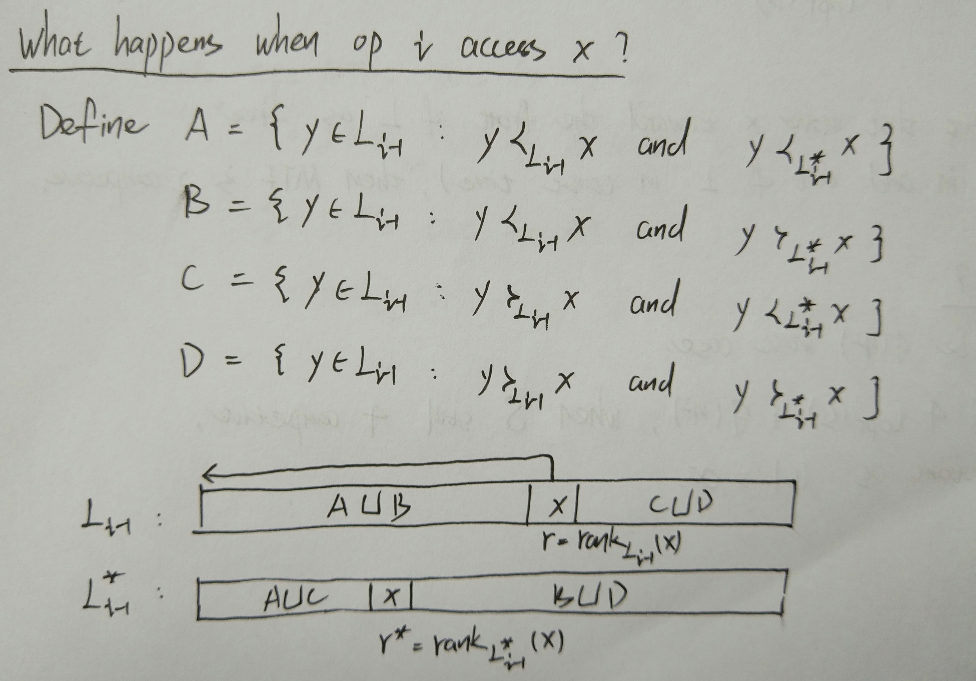 What happens when op i access x ?
Define A = { y ∈ L_{i-1} : y <_{L_{i-1}} x and y <_{L*_{i-1}} x }
B = { y ∈ L_{i-1} : y <_{L_{i-1}} x and y >_{L*_{i-1}} x }
C = { y ∈ L_{i-1} : y >_{L_{i-1}} x and y <_{L*_{i-1}} x }
D = { y ∈ L_{i-1} : y >_{L_{i-1}} x and y >_{L*_{i-1}} x }
L_{i-1} : A ∪ B x C ∪ D
r = rank_{L_{i-1}}(x)
L*_{i-1} : A ∪ C x B ∪ D
r* = rank_{L*_{i-1}}(x)